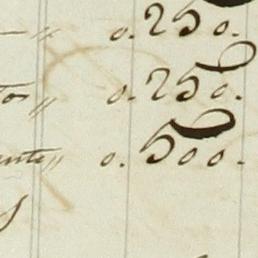 — „ 0.250.
tos „ 0.250.
ente „ 0.500.